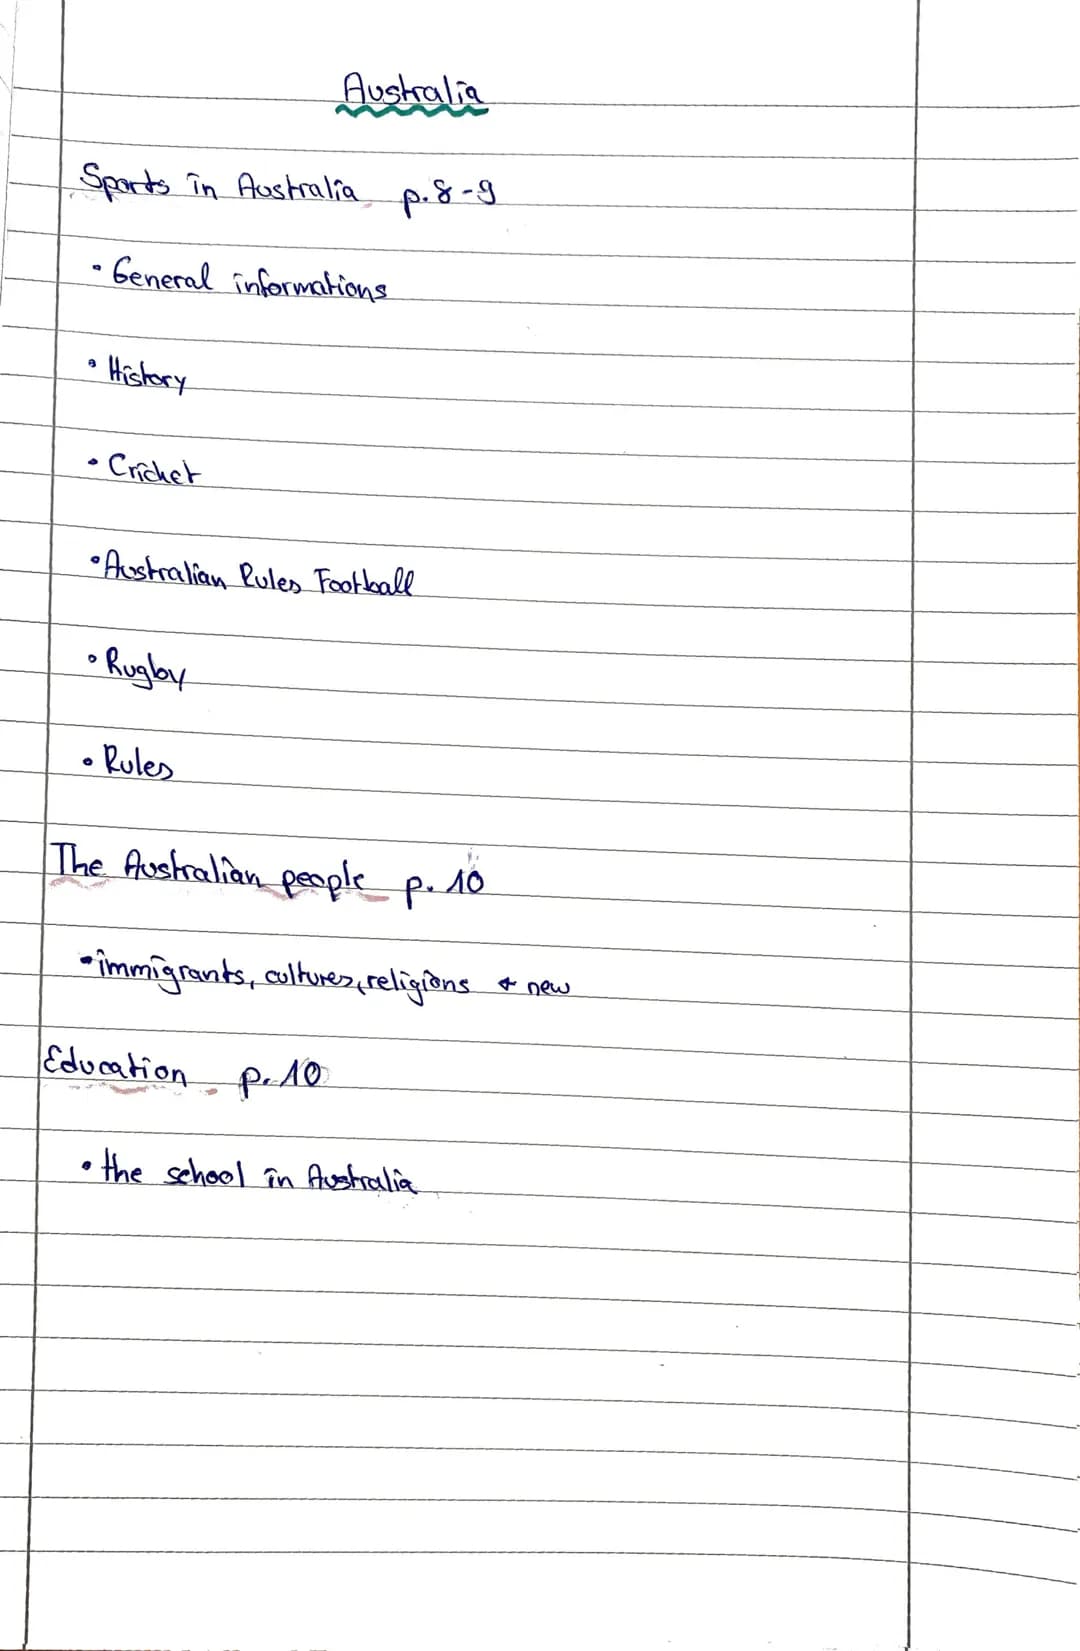 Australia
Sports in Australia p. 8-9
• General informations
• History
• Cricket
• Australian Rules Football
• Rugby
• Rules
The Australian people p. 10
• immigrants, cultures, religions + new
Education p. 10
• the school in Australia